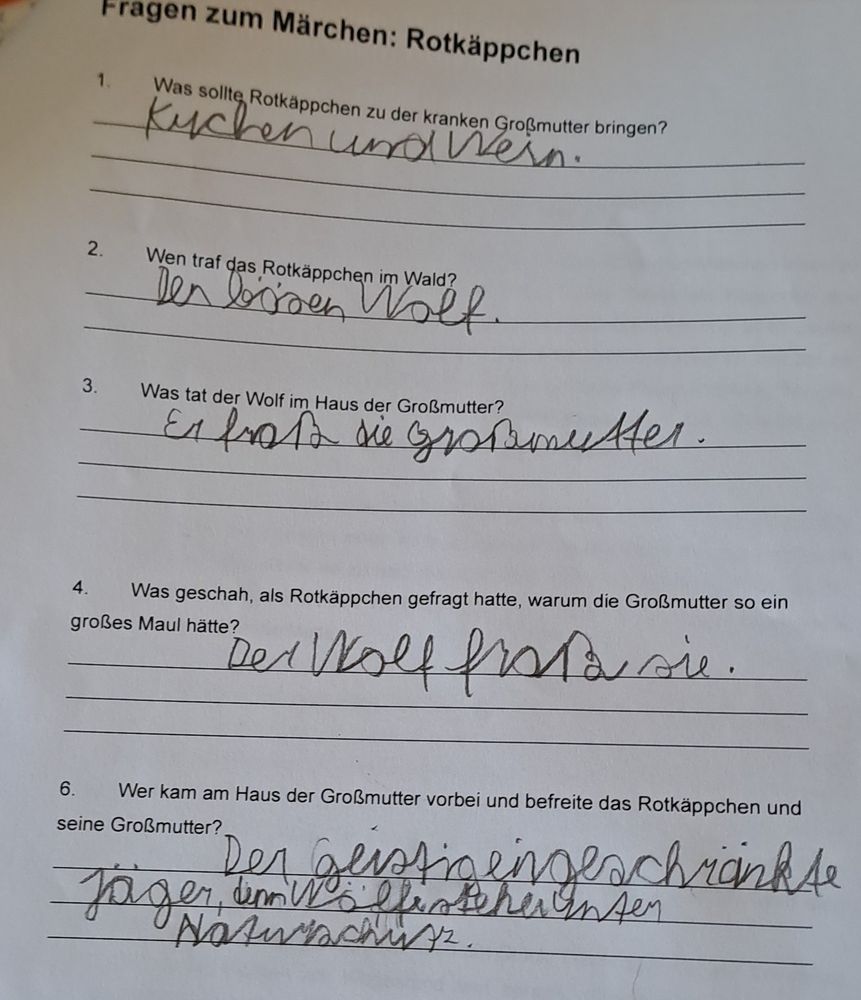 Fragen zum Märchen: Rotkäppchen
1. Was sollte Rotkäppchen zu der kranken Großmutter bringen?
Kuchen und Wein.
2. Wen traf das Rotkäppchen im Wald?
Den bösen Wolf.
3. Was tat der Wolf im Haus der Großmutter?
Er fraß die Großmutter.
4. Was geschah, als Rotkäppchen gefragt hatte, warum die Großmutter so ein
großes Maul hätte?
Der Wolf fraß sie.
6. Wer kam am Haus der Großmutter vorbei und befreite das Rotkäppchen und
seine Großmutter?
Der geistigeingeschränkte
Jäger, denn Wölfe stehen unter
Naturschutz.